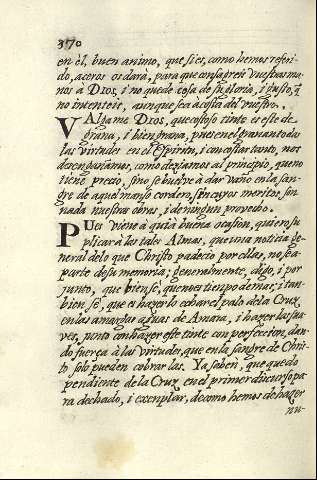 370
en èl, buen animo, que si es, como hemos referi-
do, aceros os darà, para que consagreis vuestras ma-
nos à DIOS, i no quede cosa de su gloria, i gusto, q̃
no intenteis, aunque sea à costa del vuestro.
VAlgame DIOS, que costoso tinte es este de
grana, i bien grana, pues en el granan todas
las virtudes en el Espiritu, i con costar tanto, nos
desengañamos, como deziamos al principio, que no
tiene precio, sino se buelve à dar vaño en la san-
gre de aquel manso cordero, sin cuyos meritos son
nada nuestras obras, i de ningun provecho.
PUes viene à quà à buena ocasion, quiero su
plicar à las tales Almas, que una noticia ge-
neral de lo que Christo padecio por ellas, no sea
parte de su memoria; generalmente, digo, i por
junto, que bien sè, que no es tiempo de mas; i tan-
bien sè, que es hazerlo echar el palo de la Cruz
en las amargas aguas de Amara, i hazerlas sua-
ves, junto con hazer este tinte con perfeccion, dan-
do fuerça à las virtudes, que en la sangre de Chris-
to solo pueden cobrarlas. Ya saben, que quedo
pendiente de la Cruz en el primer discurso pa-
ra dechado, i exemplar, de como hemos de hazer
nu-